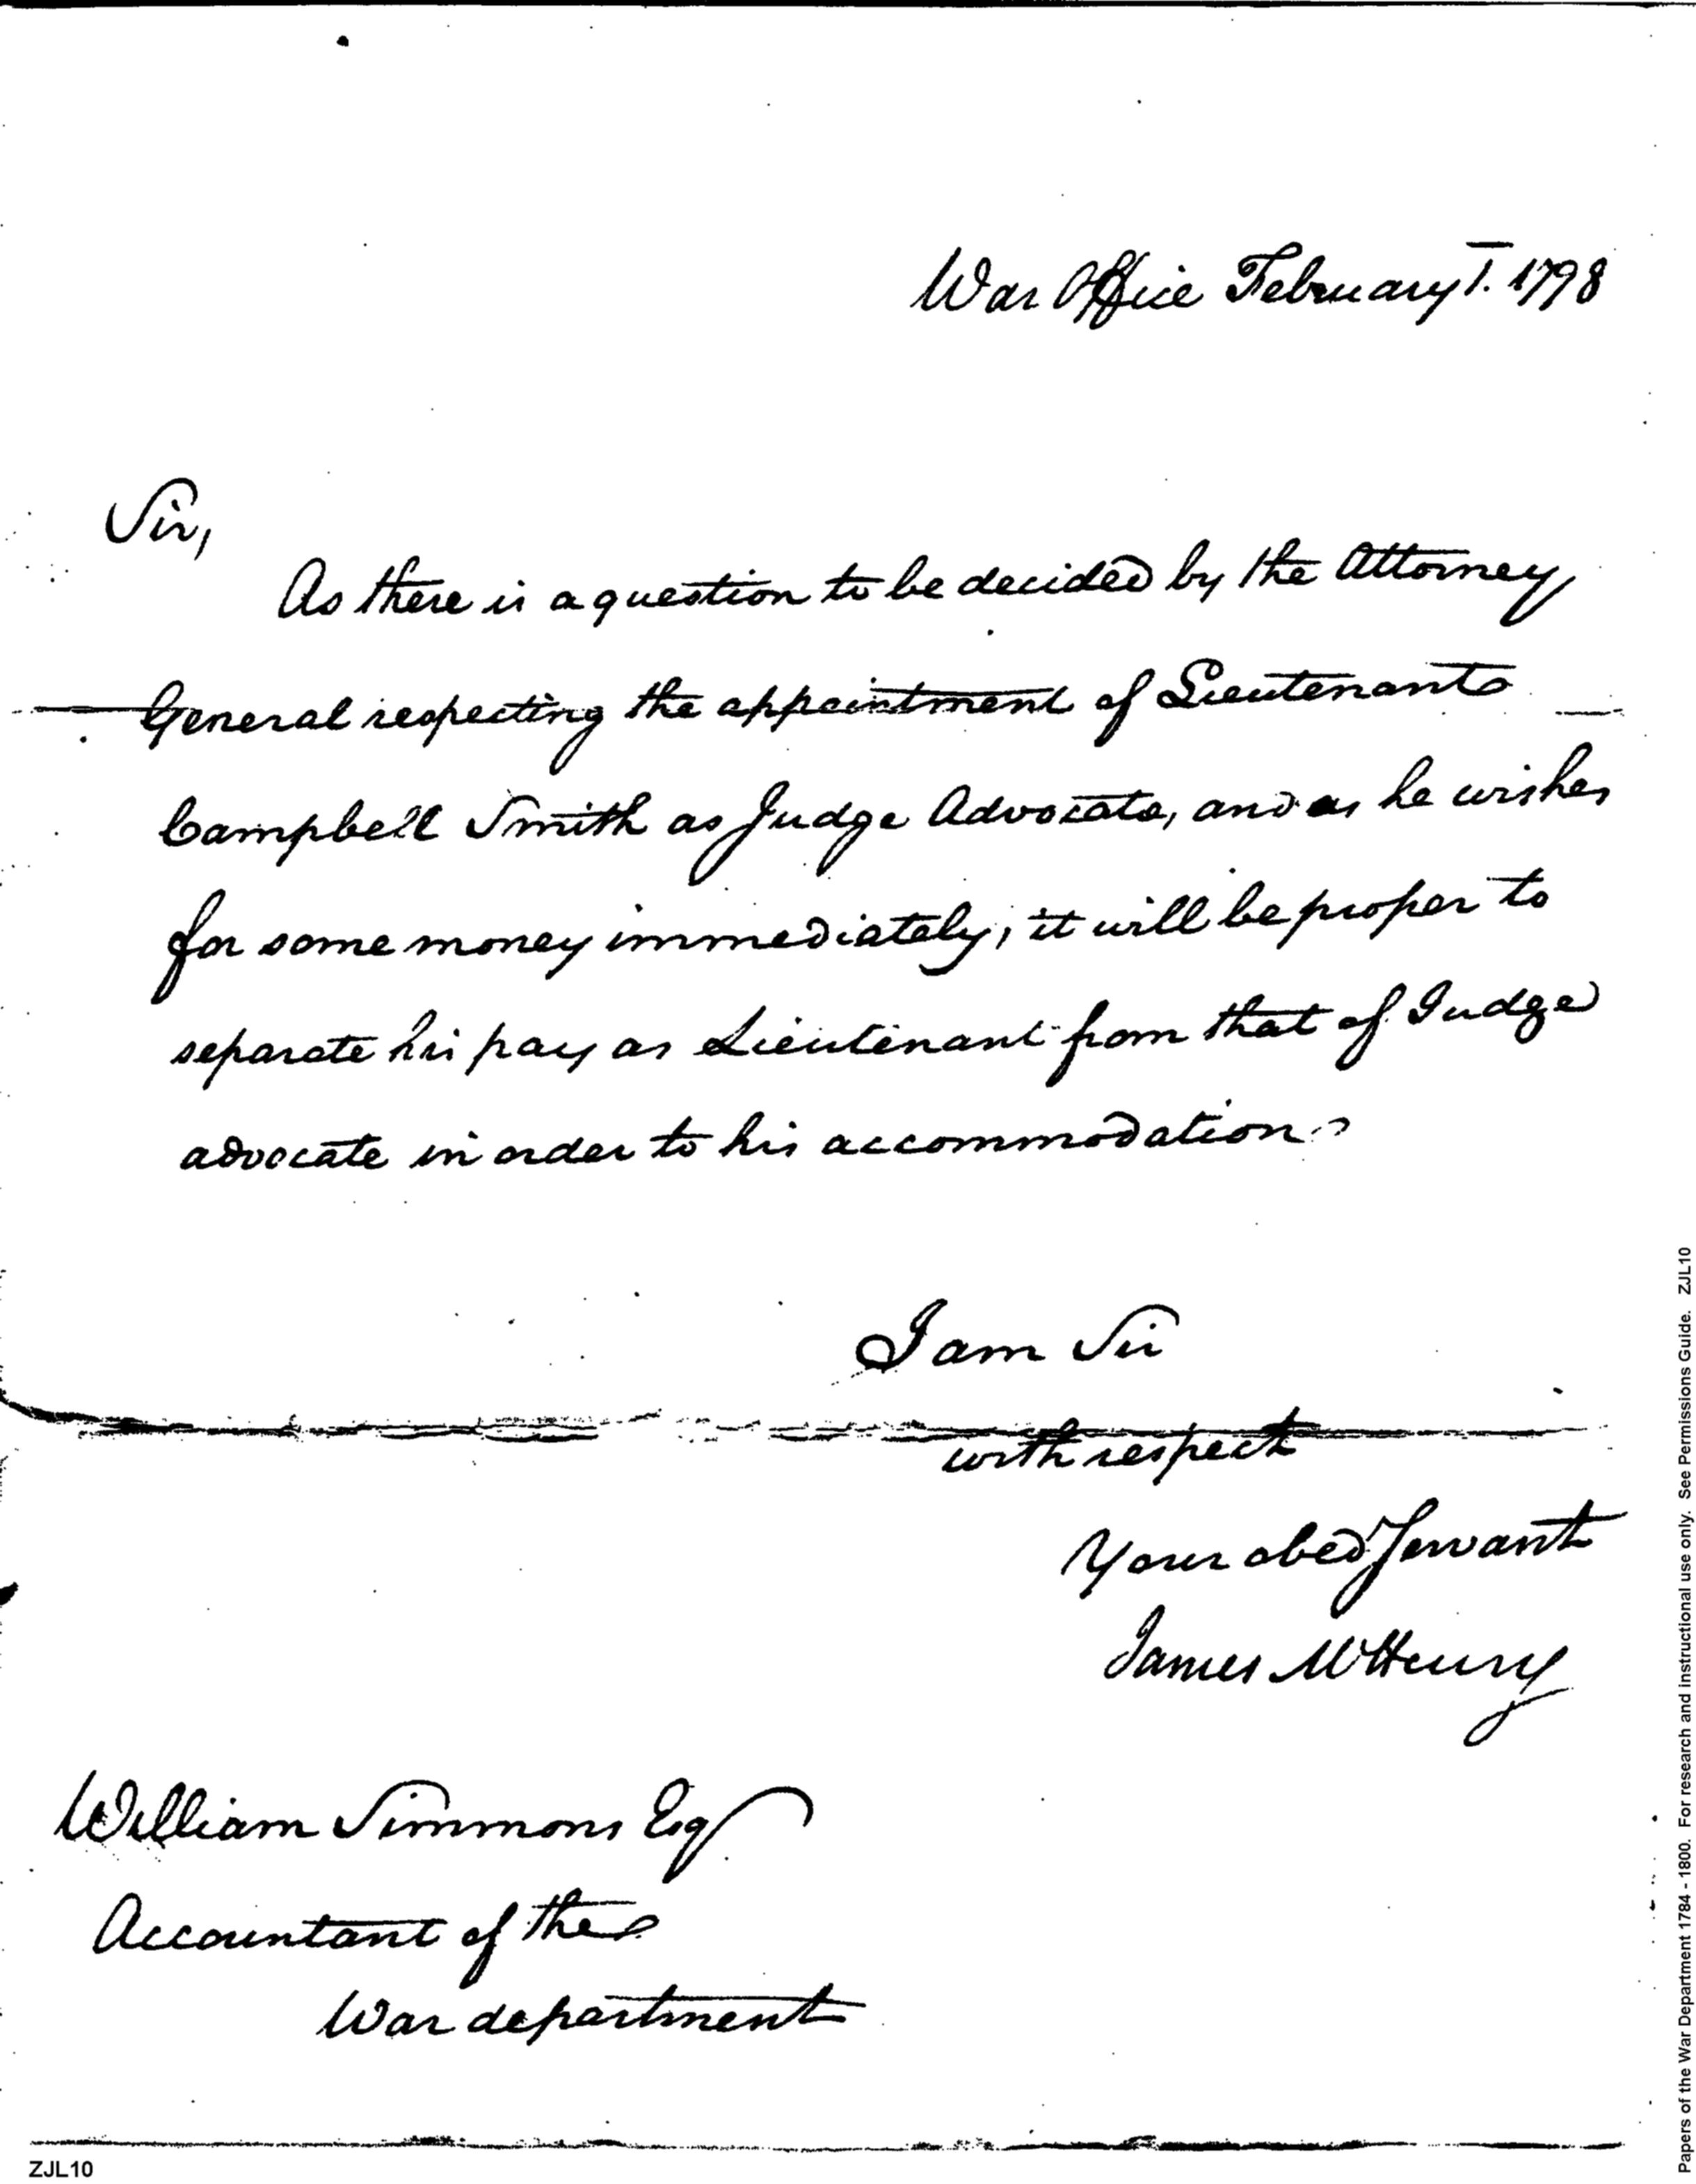 War Office February 1. 1798
Sir,
As there is a question to be decided by the Attorney
General respecting the appointment of Lieutenant
Campbell Smith as Judge Advocate, and as he wishes
for some money immediately, it will be proper to
separate his pay as Lieutenant from that of Judge
advocate in order to his accommodation
I am Sir
with respect
Your obed Servant
James McHenry
William Simmons Esq
Accountant of the
War department
ZJL10
Papers of the War Department 1784 - 1800. For research and instructional use only. See Permissions Guide. ZJL10